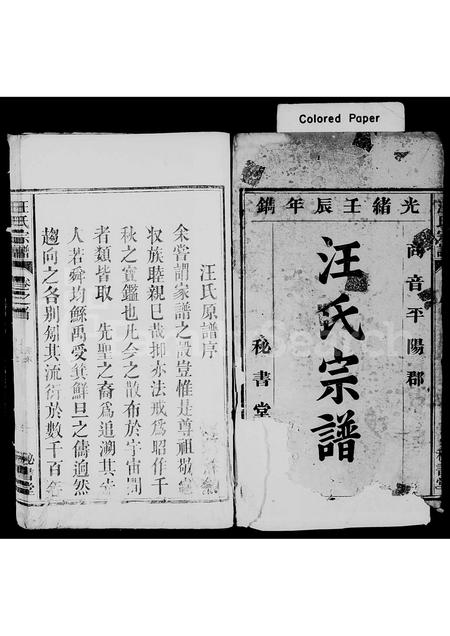 Colored Paper
光緒壬辰年鐫
商音平陽郡
汪氏宗譜
秘書堂
汪氏原譜序
余嘗謂家譜之設豈惟是尊祖敬宗
収族睦親已哉抑亦法戒為昭作千
秋之寶鑑也凡今之散布於宇宙間
者類皆取 先聖之裔為追溯其
人若舜均鯀禹受箕鮮旦之儔適然
趨向之各别矧其流衍於數千百
汪氏宗譜
秘書堂